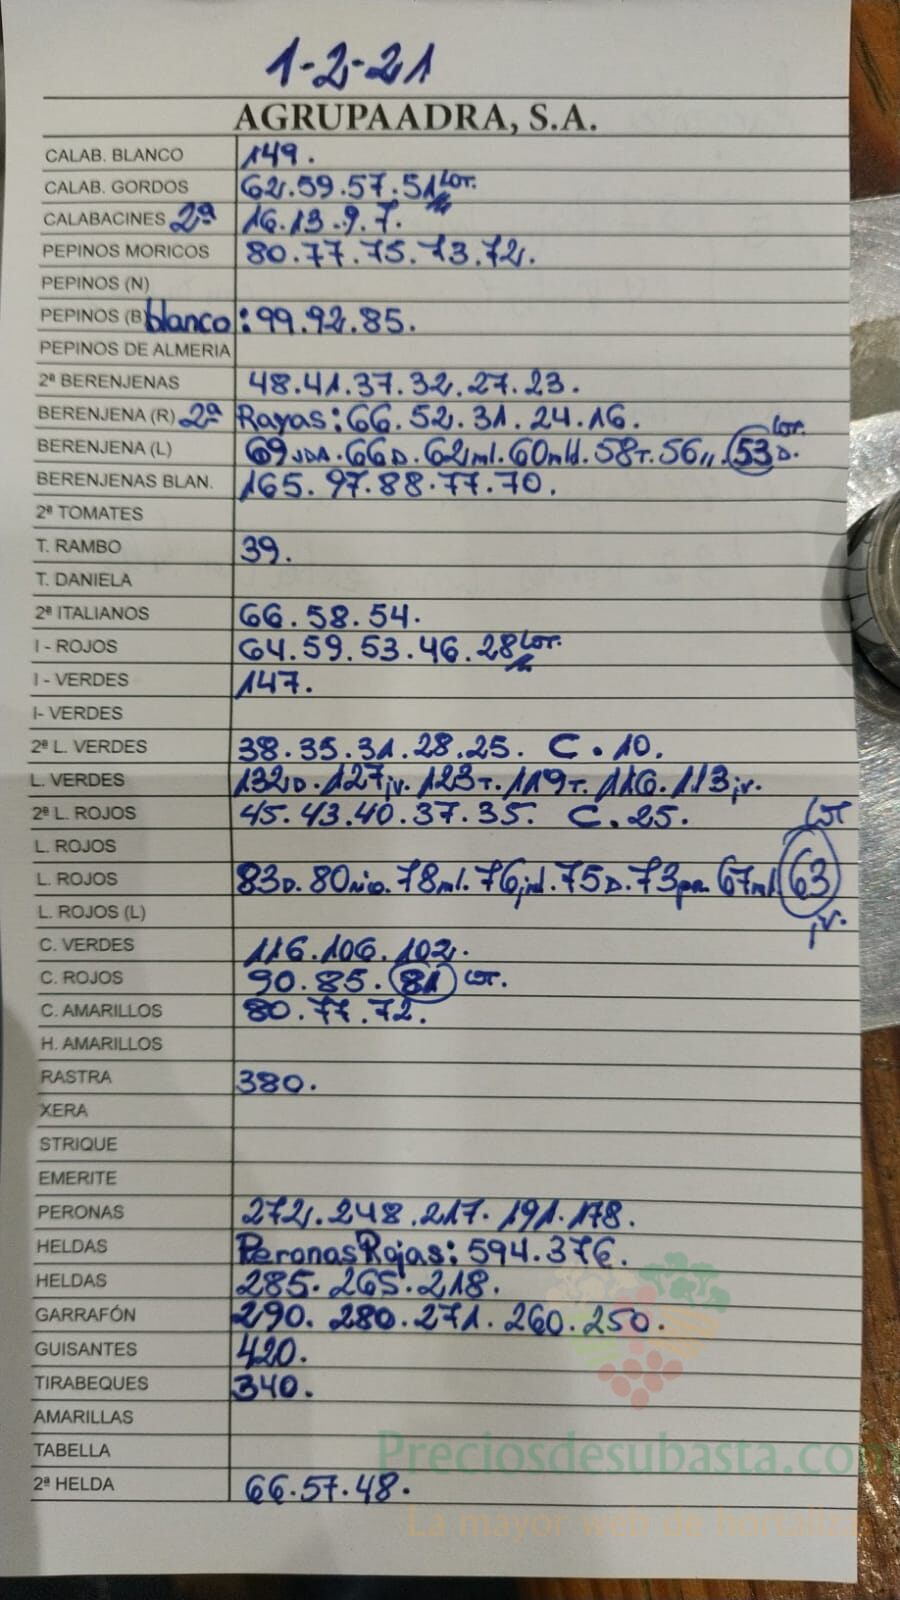 1-2-21
AGRUPAADRA, S.A.
CALAB. BLANCO 149.
CALAB. GORDOS 62.59.57.51 Lot.
CALABACINES 2ª 16.13.9.7.
PEPINOS MORICOS 80.77.75.73.72.
PEPINOS (N)
PEPINOS (B) blanco: 99.92.85.
PEPINOS DE ALMERIA
2ª BERENJENAS 48.41.37.32.27.23.
BERENJENA (R) 2ª Rayas: 66.52.31.24.16.
BERENJENA (L) 69 JDA. 66D. 62ml. 60mld. 58T. 56,,. 53D. Lot.
BERENJENAS BLAN. 165.97.88.77.70.
2ª TOMATES
T. RAMBO 39.
T. DANIELA
2ª ITALIANOS 66.58.54.
I - ROJOS 64.59.53.46.28 Lot.
I - VERDES 147.
I- VERDES
2ª L. VERDES 38.35.31.28.25. C.10.
L. VERDES 132D. 127jv. 123T. 119T. 116. 113jv.
2ª L. ROJOS 45.43.40.37.35. C.25.
L. ROJOS
L. ROJOS 83D. 80 78ml. 76 75D. 73 67ml. 63 jv. Lot
L. ROJOS (L)
C. VERDES 116.106.102.
C. ROJOS 90.85.81 Lot.
C. AMARILLOS 80.77.72.
H. AMARILLOS
RASTRA 380.
XERA
STRIQUE
EMERITE
PERONAS 272.248.217.191.178.
HELDAS Peronas Rojas: 594.376.
HELDAS 285.265.218.
GARRAFÓN 290.280.271.260.250.
GUISANTES 420.
TIRABEQUES 340.
AMARILLAS
TABELLA
Preciosdesubasta.com
2ª HELDA 66.57.48.
La mayor web de hortaliza